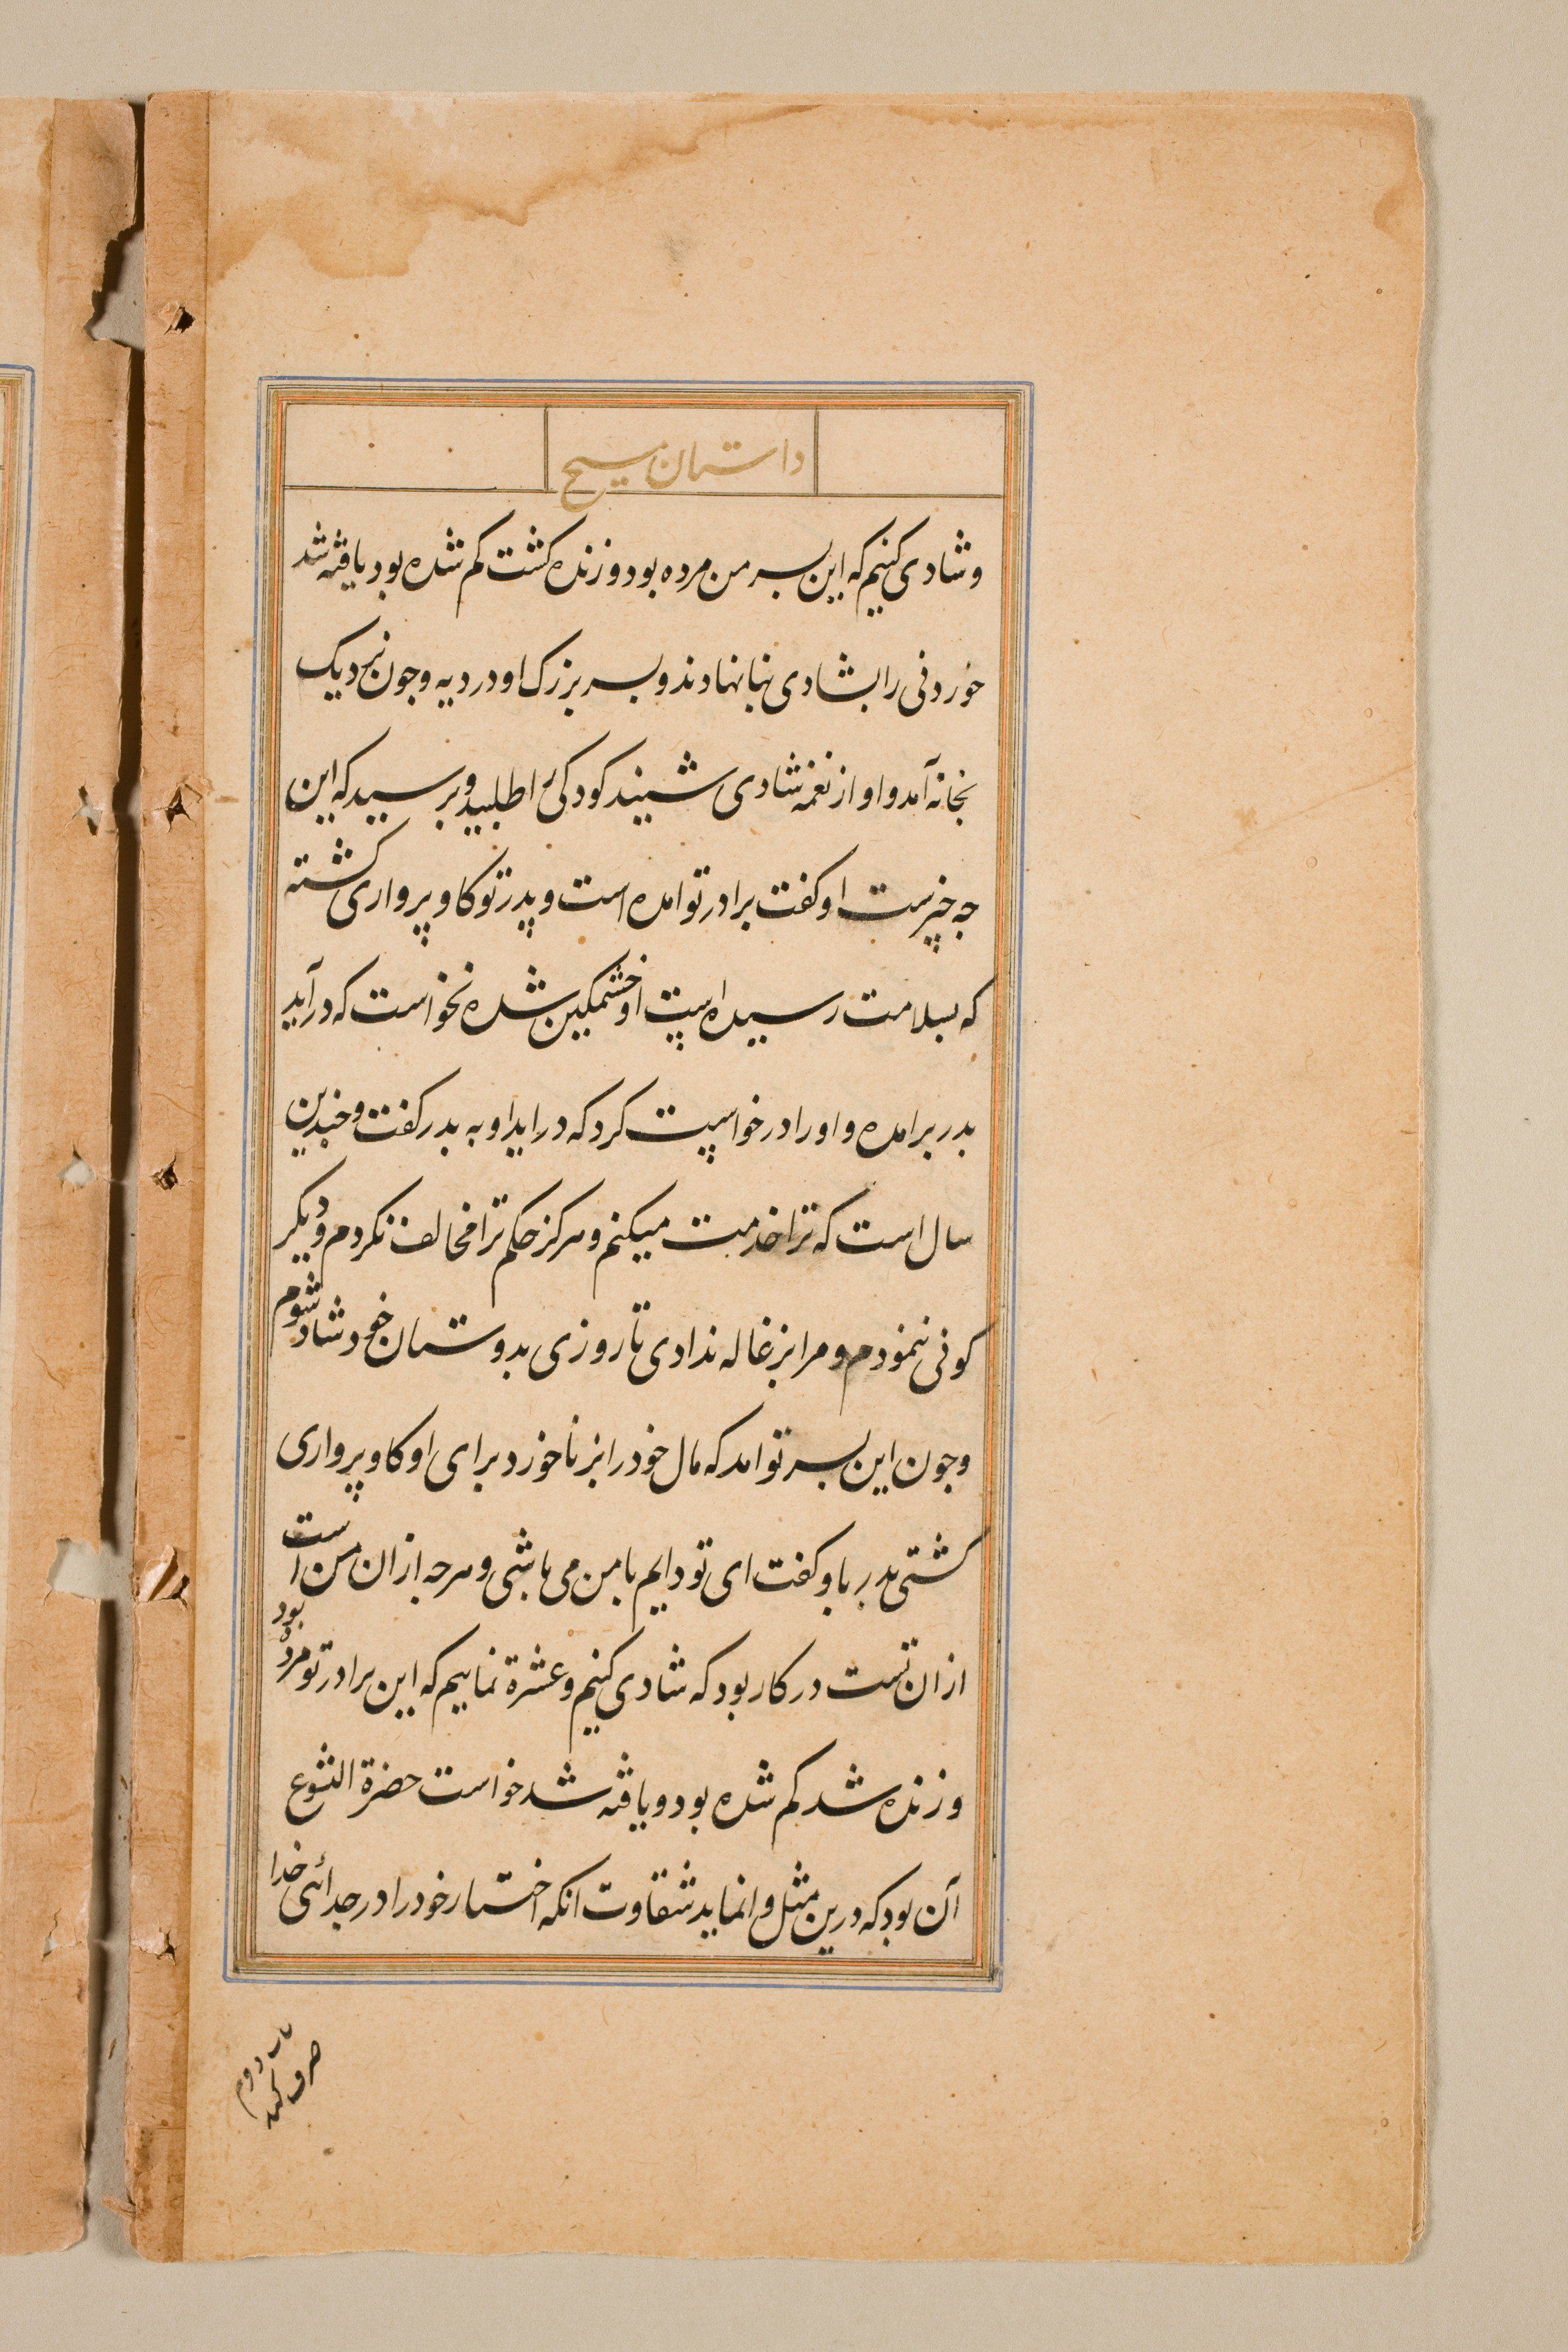 داستان مسیح
و شادی کنیم که این پسر من مرده بود و زنده کشت کم شده بود یافته شد
خوردنی را بشادی بنا نهادند و پسر بزرک او در دیه و چون نزدیک
بخانه آمد و اواز نغمه شادی شنیند کودکی را طلبید و پرسید که این
چه چیزست او کفت برادر تو امده است و پدر تو کاو پرواری کشته
که بسلامت رسیده است او خشمکین شده نخواست که درآید
بدر برامده و او را درخواست کرد که دراید او به بدر کفت و چندین
سال است که ترا خدمت میکنم و هرکز حکم ترا مخالف نکردم و دیکر
کونی ننمودم و مرا بزغاله ندادی تا روزی بدوستان خود شاد شوم
و جون این پسر تو امد که مال خود را بزنا خورد برای او کاو پرواری
کشتی بدر باو کفت ای تو دایم با من می باشی و هرچه ازان من است
ازان تست در کار بود که شادی کنیم و عشرة نماییم که این برادر تو مرده بود
و زنده شد کم شده بود و یافته شد خواست حضرة ایشوع
آن بود که درین مثل وانماید شقاوت انکه اختیار خود را در جدائی خدا
صرف کند
باب دوم